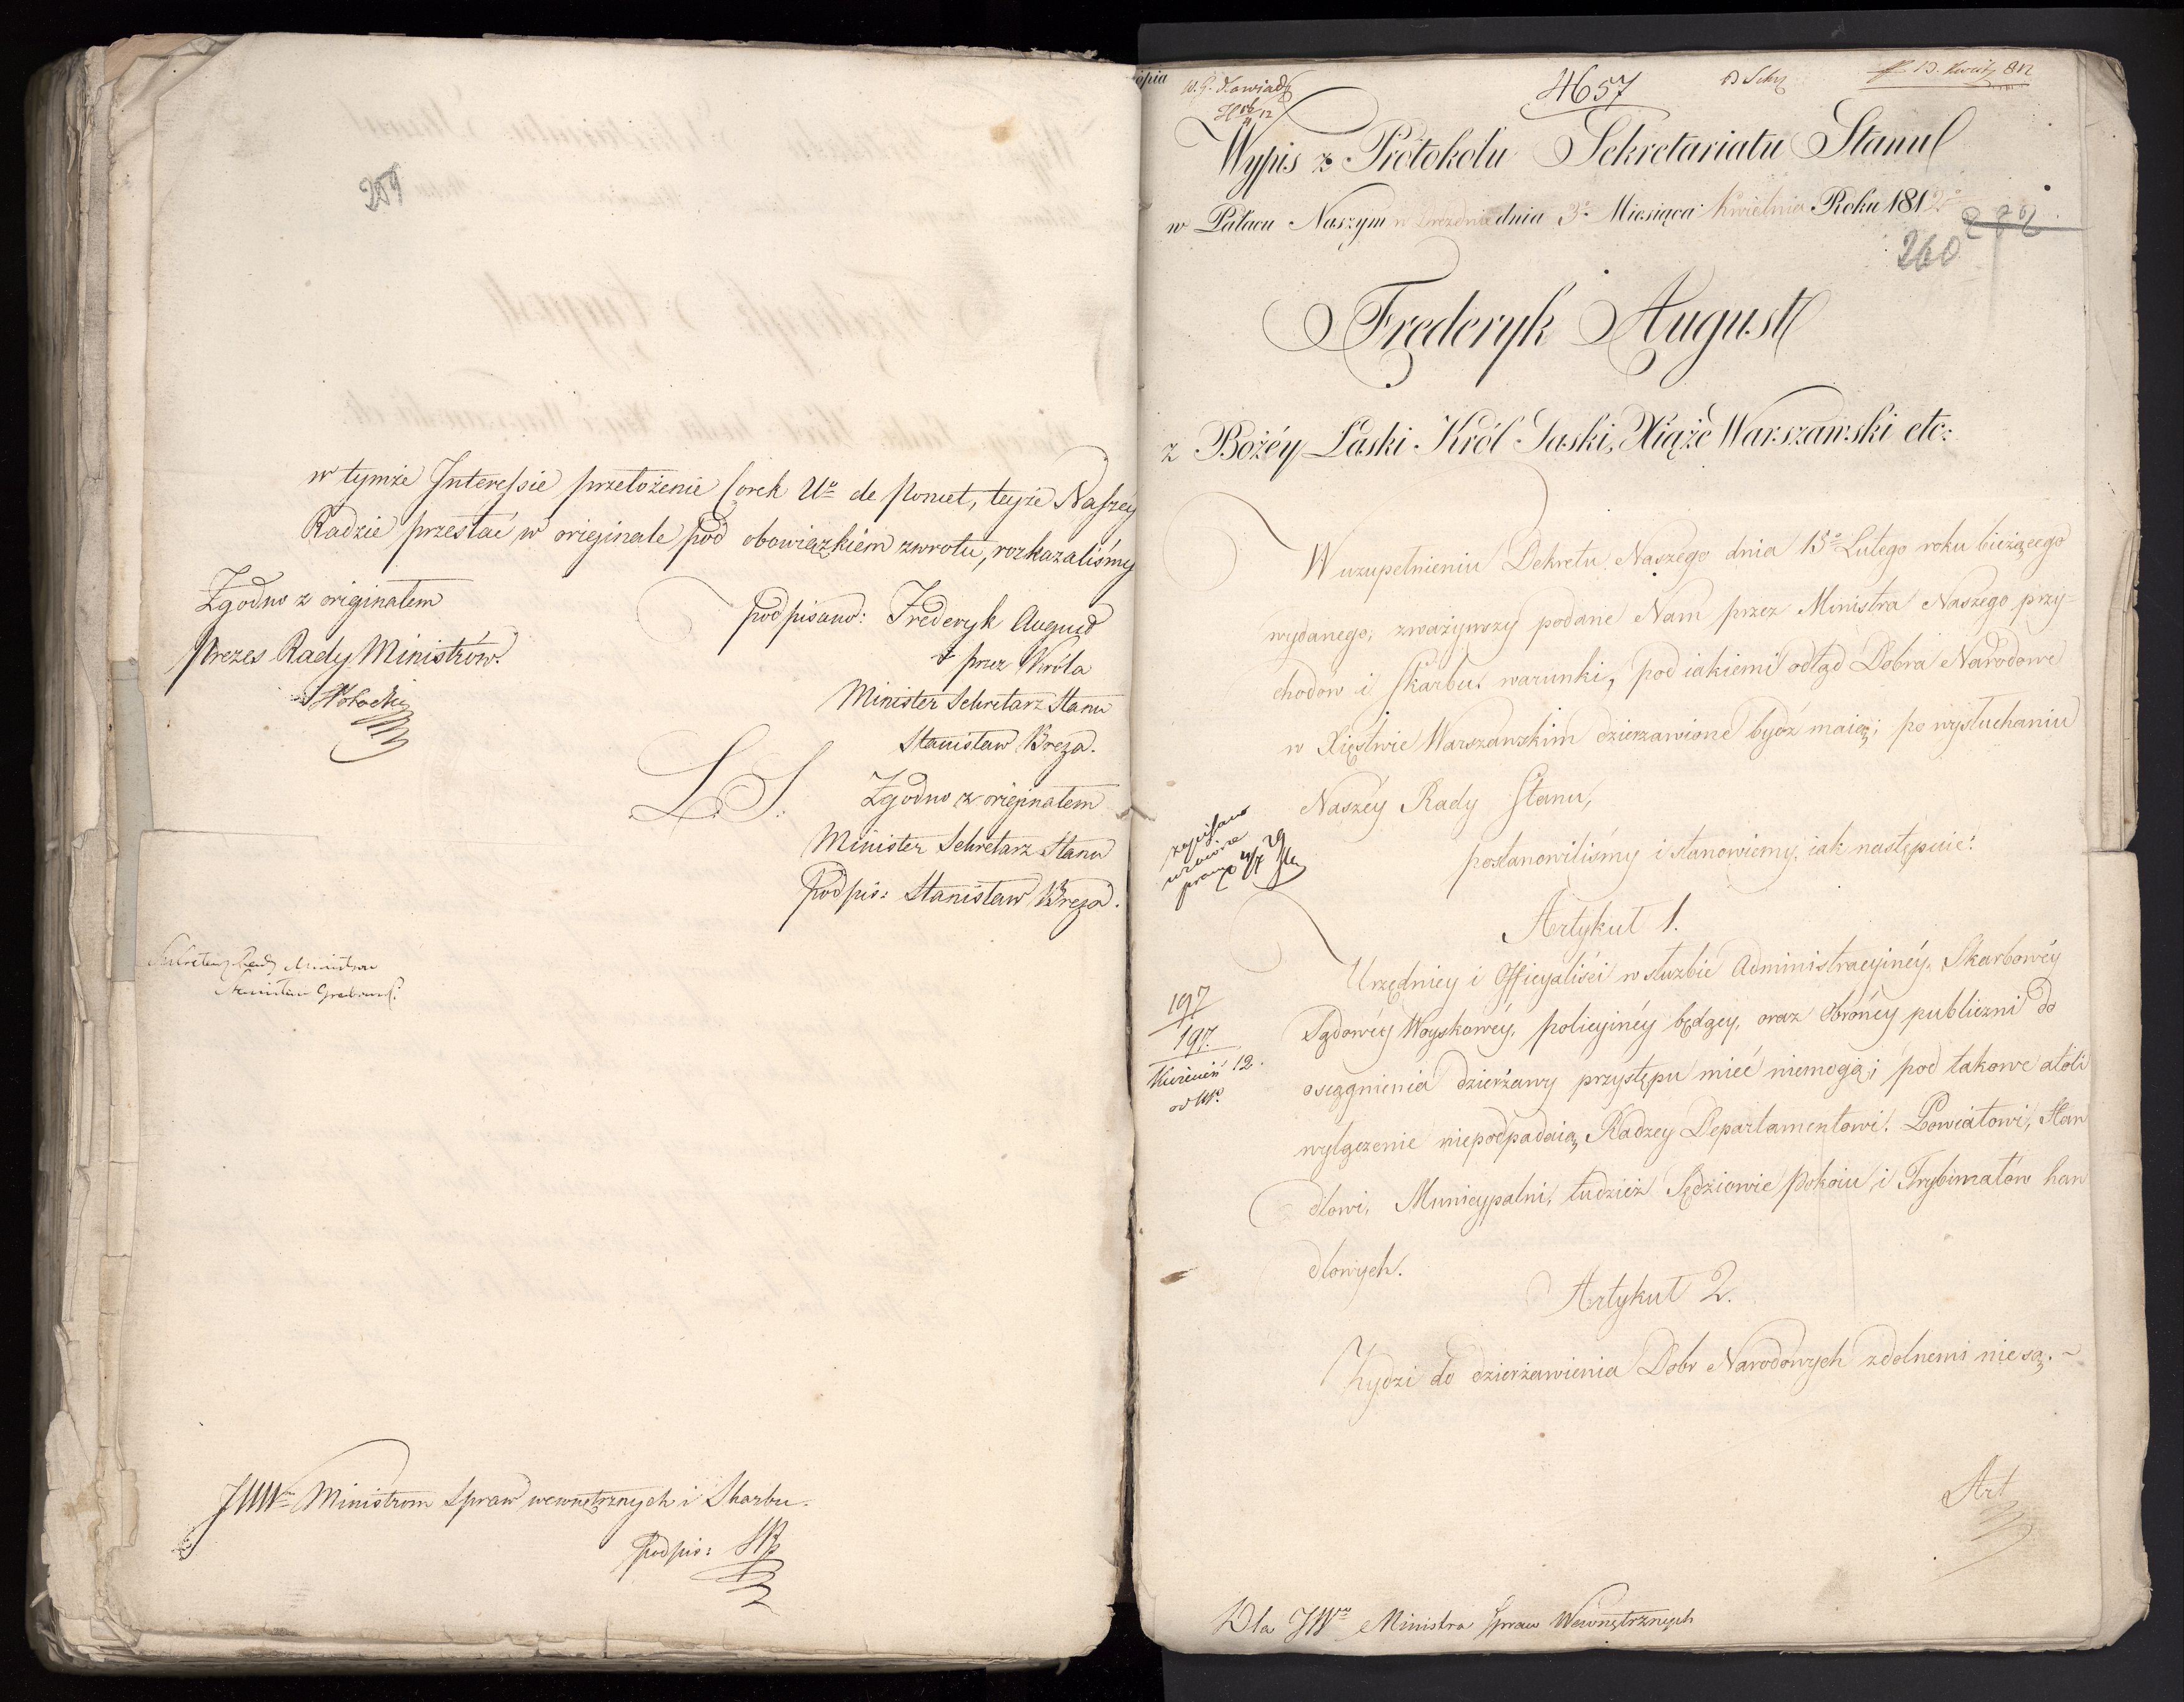 259
w tymże Interessie przełożenie Corek Uo de Pomet, teyże Naszey
Radzie przesłać w originale pod obowiązkiem zwrotu, rozkazaliśmy
Zgodno z originałem
Prezes Rady Ministrów.
podpisano: Frederyk August
przez Króla
Minister Sekretarz Stanu
Stanisław Breza.
L. S.
Zgodno z originałem
Minister Sekretarz Stanu
Podpis: Stanisław Breza.
Sekretarz Rady Ministrów
Stanisław Grabowski
JWWm Ministrom Spraw wewnętrznych i Skarbu.
podpis:
opia
4657
13. Kwiet 812
Wypis z Protokołu Sekretariatu Stanu
w Pałacu Naszym w Dreznie dnia 3o Miesiąca Kwietnia Roku 1812o
260
Frederyk August
z Bożéy Łaski Król Saski, Xiąże Warszawski etc:
W uzupełnieniu Dekretu Naszego dnia 15o Lutego roku bieżącego
wydanego; zważywszy podane Nam przez Ministra Naszego przy-
chodów i Skarbu warunki, pod iakiemi odtąd Dobra Narodowe
w Xięstwie Warszawskim dzierzawione bydź maią; po wysłuchaniu
Naszéy Rady Stanu,
postanowiliśmy i stanowiemy, iak następuie:
Artykuł 1.
Urzędnicy i Officyaliści w służbie Administracyinéy, Skarbowéy
Sądowéy Woyskowéy, policyinéy będący, oraz Obrońcy publiczni do
osiągnienia dzierżawy przystępu mieć niemogą; pod takowe atoli
wyłączenie niepodpadaią, Radzcy Departamentowi, Powiatowi, Han
dlowi, Municypalni, tudzież Sędziowie Pokoiu, i Trybunałów han
dlowych.
197
197.
Kwiecień 12.
Artykuł 2.
Żydzi do dzierżawienia Dobr Narodowych zdolnemi nie są.
Art
Dla JWo Ministra Spraw Wewnętrznych